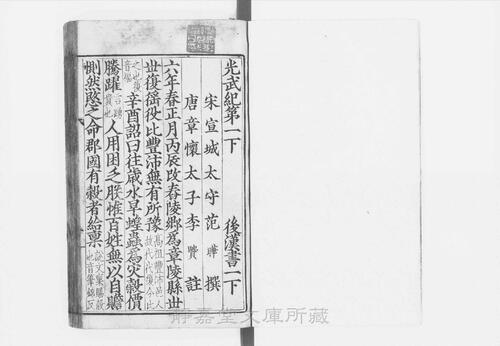 光武紀第一下　後漢書一下
宋宣城太守范曄撰
唐章懷太子李賢註
六年春正月丙辰改舂陵鄉為章陵縣世
世復徭役比豐沛無有所豫
辛酉詔曰往歲水旱蝗蟲為灾穀價
騰躍人用困乏朕惟百姓無以自贍
惻然愍之命郡國有穀者給稟
靜嘉堂文庫所藏